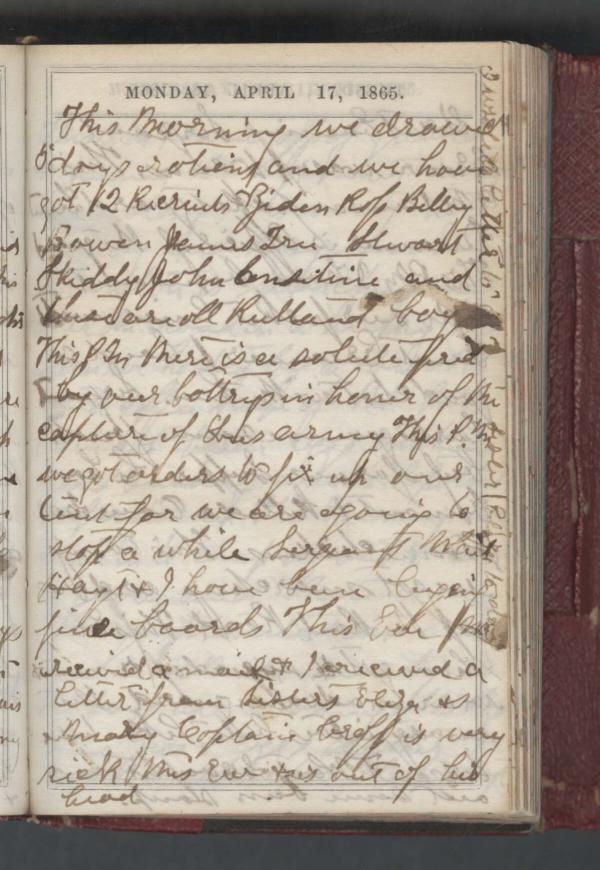 MONDAY, APRIL 17, 1865.
This Morning we drawed
5 days rotions and we have
got 12 Giden Rofs Billy
Bowen James Stwart
Skiddy John and
all Rutland boys
This P.M. there is a solute fired
by our battrys in honor of the
capture of army This P.M.
we got orders to fix up our
tent for we are agoing to
stop a while Sergeant
& I have been
boards This Eve we
recived a mail & I recieved a
letter from Sisters Eliza &
Mary Captain is very
sick this Eve & is out of his
head